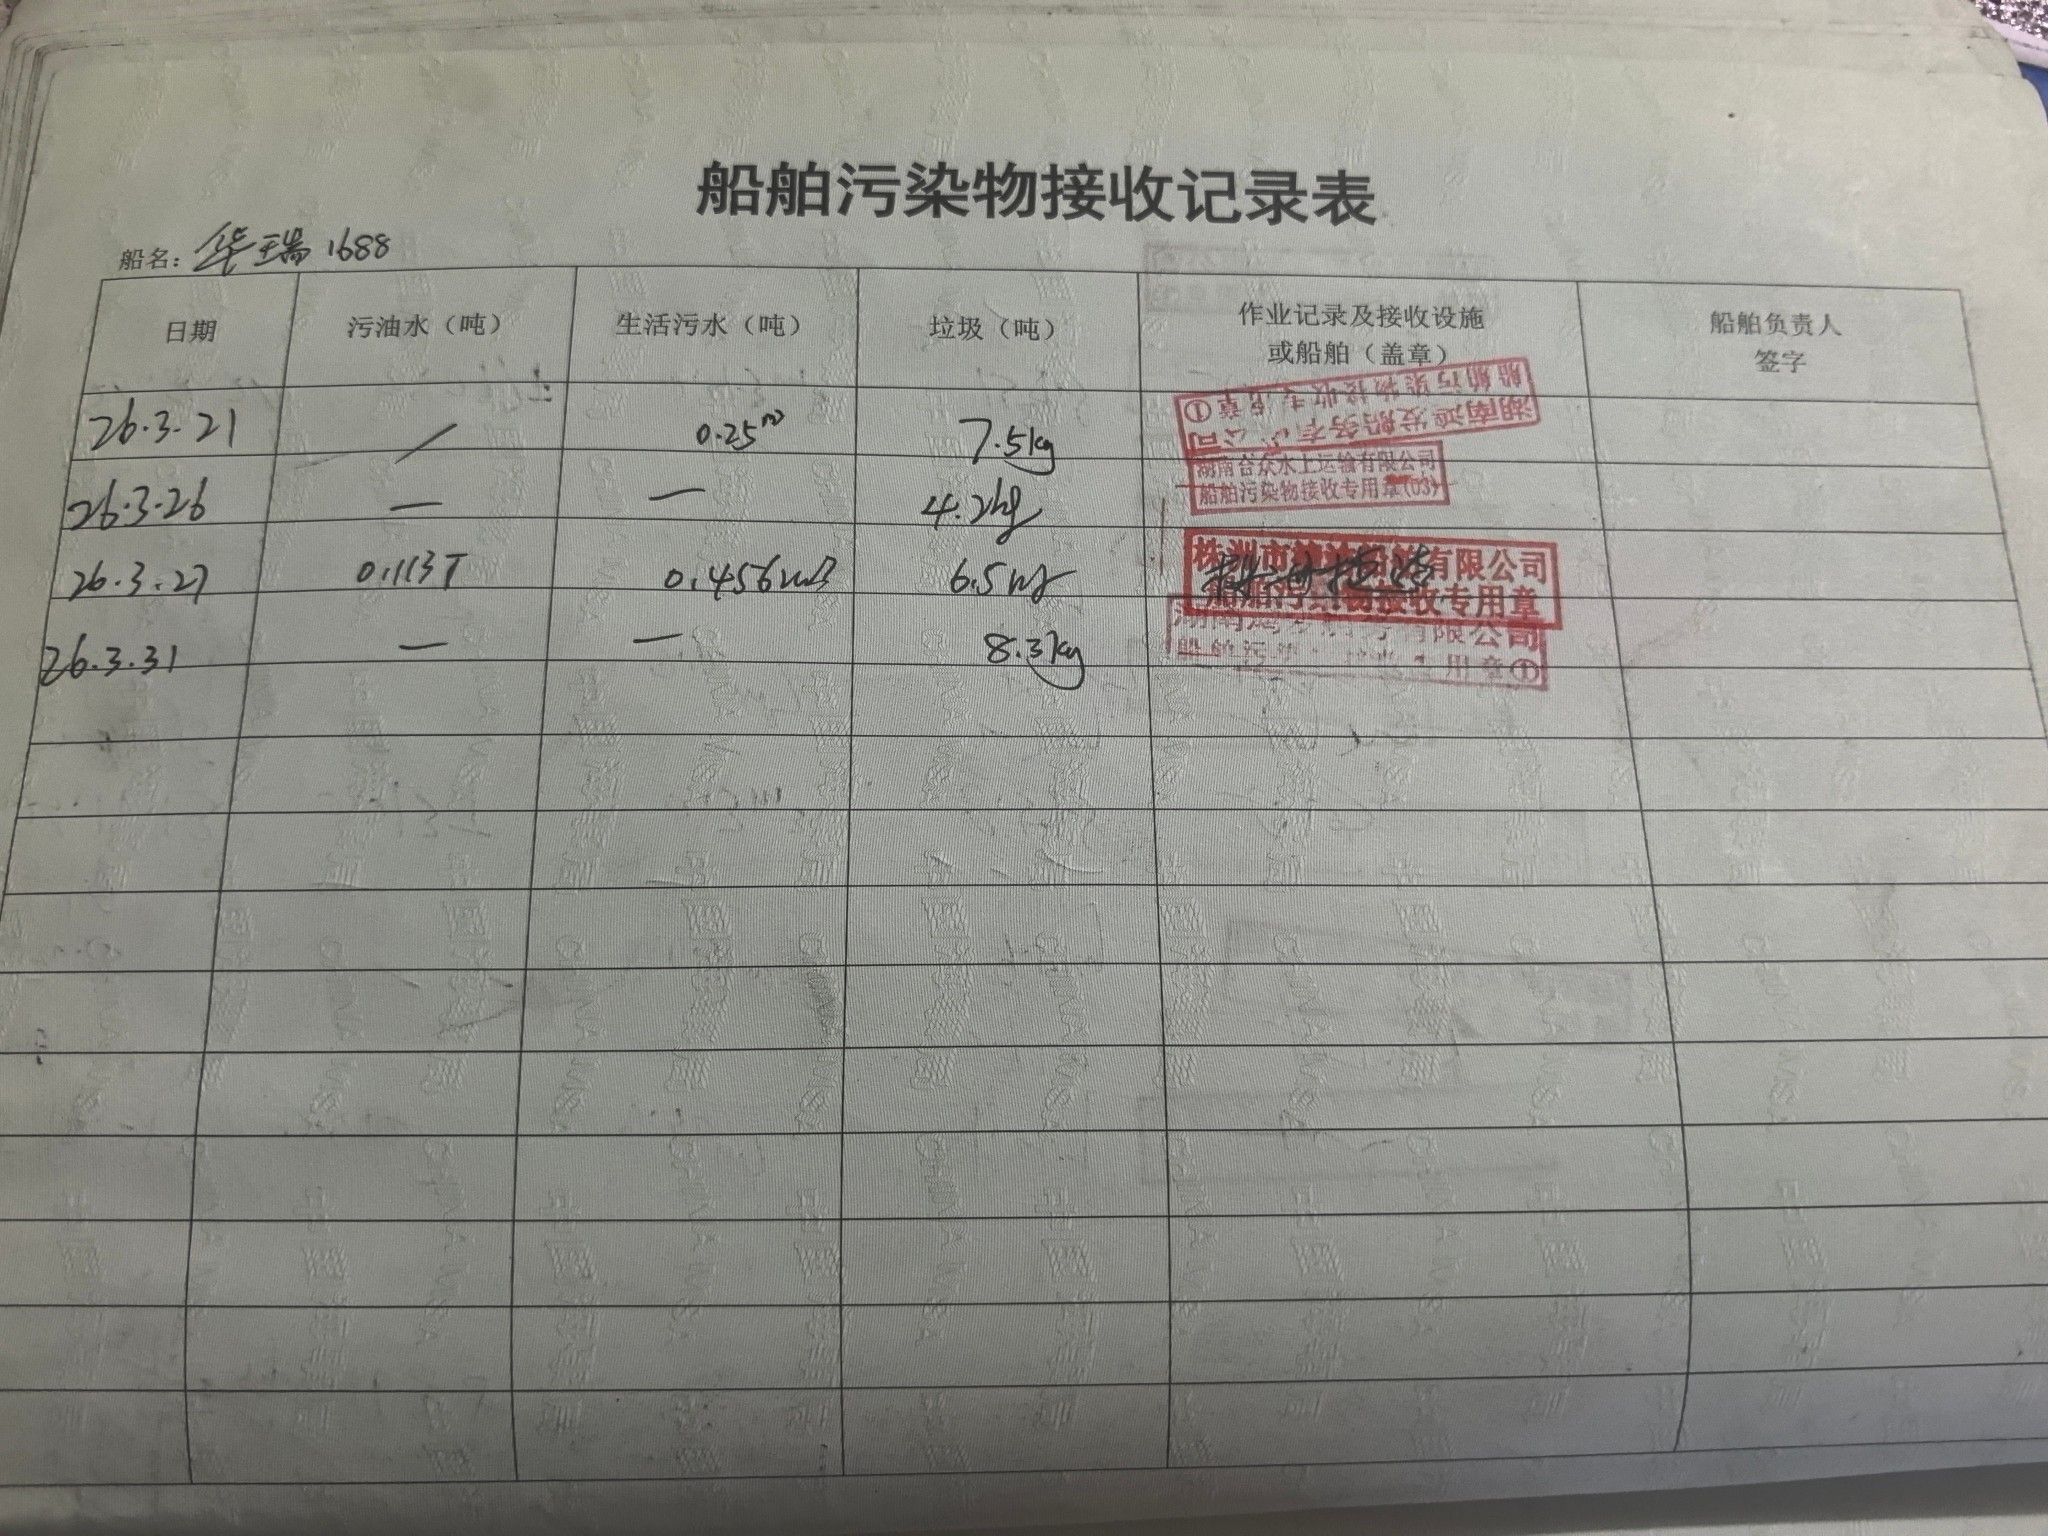 船舶污染物接收记录表
船名：华瑞1688
日期 污油水（吨） 生活污水（吨） 垃圾（吨） 作业记录及接收设施或船舶（盖章） 船舶负责人签字
26.3.21 / 0.25m³ 7.5kg
湖南鸿发船务有限公司
船舶污染物接收专用章①
26.3.26 — — 4.2kg
湖南合众水上运输有限公司
船舶污染物接收专用章(03)
26.3.27 0.113T 0.456m3 6.5kg
株洲市 有限公司
船舶污染物接收专用章
26.3.31 — — 8.3kg
湖南 有限公司
船舶污 用章①